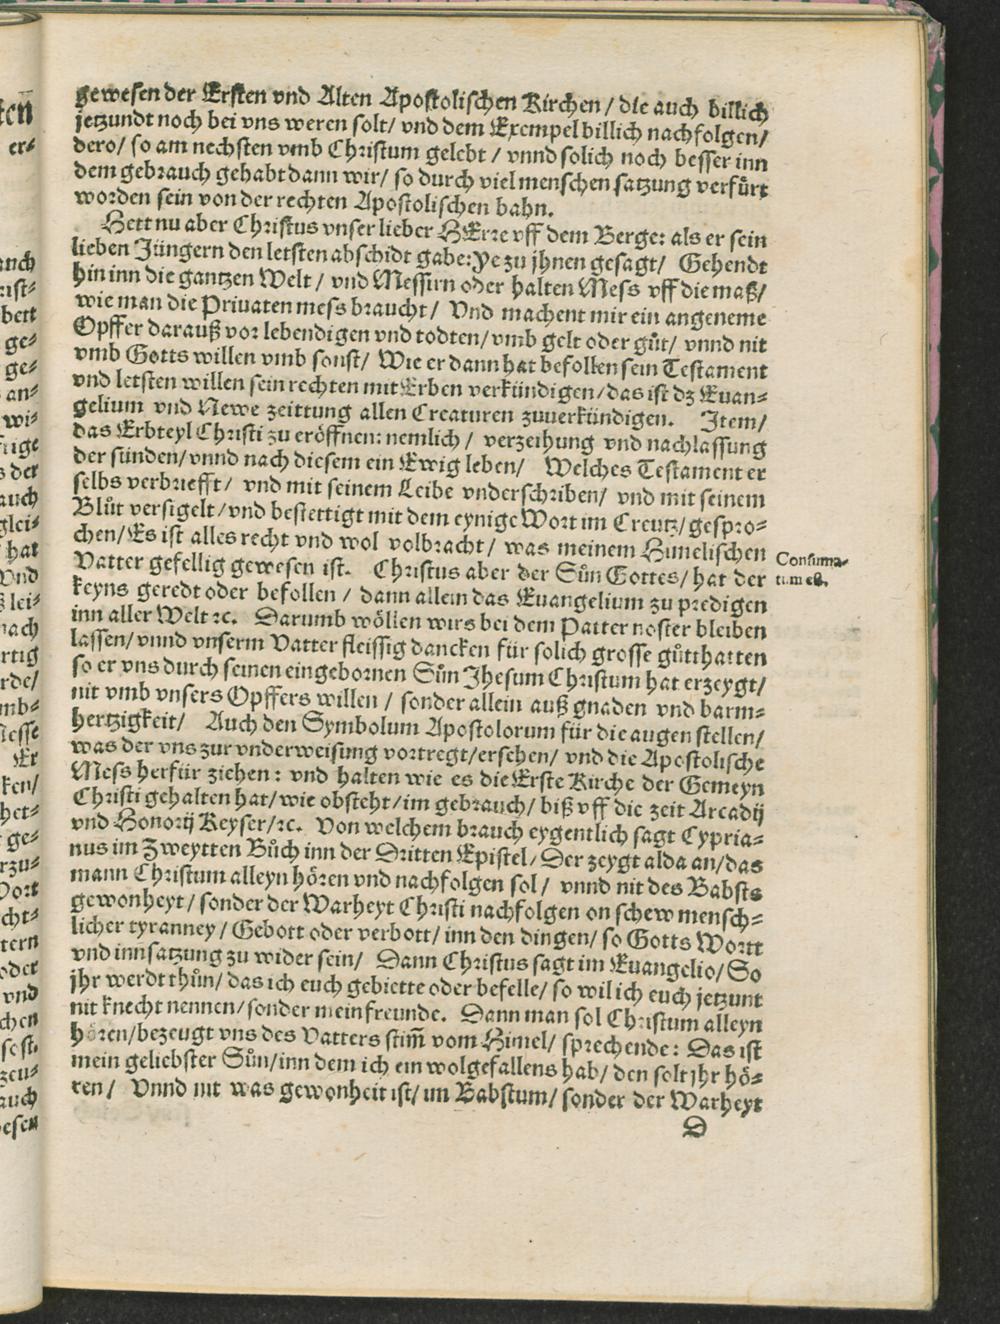 gewesen der Ersten vnd Alten Apostolischen Kirchen / die auch billich
jetzundt noch bei vns weren solt / vnd dem Exempel billich nachfolgen /
dero / so am nechsten vmb Christum gelebt / vnnd solich noch besser inn
dem gebrauch gehabt dann wir / so durch viel menschen satzung verfürt
worden sein von der rechten Apostolischen bahn.
Hett nu aber Christus vnser lieber HErre vff dem Berge: als er sein
lieben Jüngern den letsten abschidt gabe: ye zu jhnen gesagt / Gehendt
hin inn die gantzen Welt / vnd Messirn oder halten Mess vff die maß /
wie man die Priuaten mess braucht / Vnd machent mir ein angeneme
Opffer darauß vor lebendigen vnd todten / vmb gelt oder gůt / vnnd nit
vmb Gotts willen vmb sonst / Wie er dann hat befollen sein Testament
vnd letsten willen sein rechten mit Erben verkündigen / das ist dz Euan⸗
gelium vnd Newe zeittung allen Creaturen zuuerkündigen. Item /
das Erbteyl Christi zu eröffnen: nemlich / verzeihung vnd nachlassung
der sünden / vnnd nach diesem ein Ewig leben / Welches Testament er
selbs verbriefft / vnd mit seinem Leibe vnderschriben / vnd mit seinem
Blůt versigelt / vnd bestettigt mit dem eynige Wort im Creutz / gespro⸗
chen / Es ist alles recht vnd wol volbracht / was meinem Himelischen
Vatter gefellig gewesen ist. Christus aber der Sůn Gottes / hat der
Consuma-
tum est.
keyns geredt oder befollen / dann allein das Euangelium zu predigen
inn aller Welt ꝛc. Darumb wöllen wirs bei dem Patter noster bleiben
lassen / vnnd vnserm Vatter fleissig dancken für solich grosse gůtthatten
so er vns durch seinen eingebornen Sůn Jhesum Christum hat erzeygt /
nit vmb vnsers Opffers willen / sonder allein auß gnaden vnd barm⸗
hertzigkeit / Auch den Symbolum Apostolorum für die augen stellen /
was der vns zur vnderweisung vortregt / ersehen / vnd die Apostolische
Mess herfür ziehen: vnd halten wie es die Erste Kirche der Gemeyn
Christi gehalten hat / wie obsteht / im gebrauch / biß vff die zeit Arcadij
vnd Honorij Keyser / ꝛc. Von welchem brauch eygentlich sagt Cypria⸗
nus im Zweytten Bůch inn der Dritten Epistel / Der zeygt alda an / das
mann Christum alleyn hören vnd nachfolgen sol / vnnd nit des Babsts
gewonheyt / sonder der Warheyt Christi nachfolgen on schew mensch⸗
licher tyranney / Gebott oder verbott / inn den dingen / so Gotts Wortt
vnd innsatzung zu wider sein / Dann Christus sagt im Euangelio / So
jhr werdt thůn / das ich euch gebiette oder befelle / so wil ich euch jetzunt
nit knecht nennen / sonder mein freunde. Dann man sol Christum alleyn
hören / bezeugt vns des Vatters stim̃ vom Himel / sprechende: Das ist
mein geliebster Sůn / inn dem ich ein wolgefallens hab / den solt jhr hö⸗
ren / Vnnd nit was gewonheit ist / im Babstum / sonder der Warheyt
D